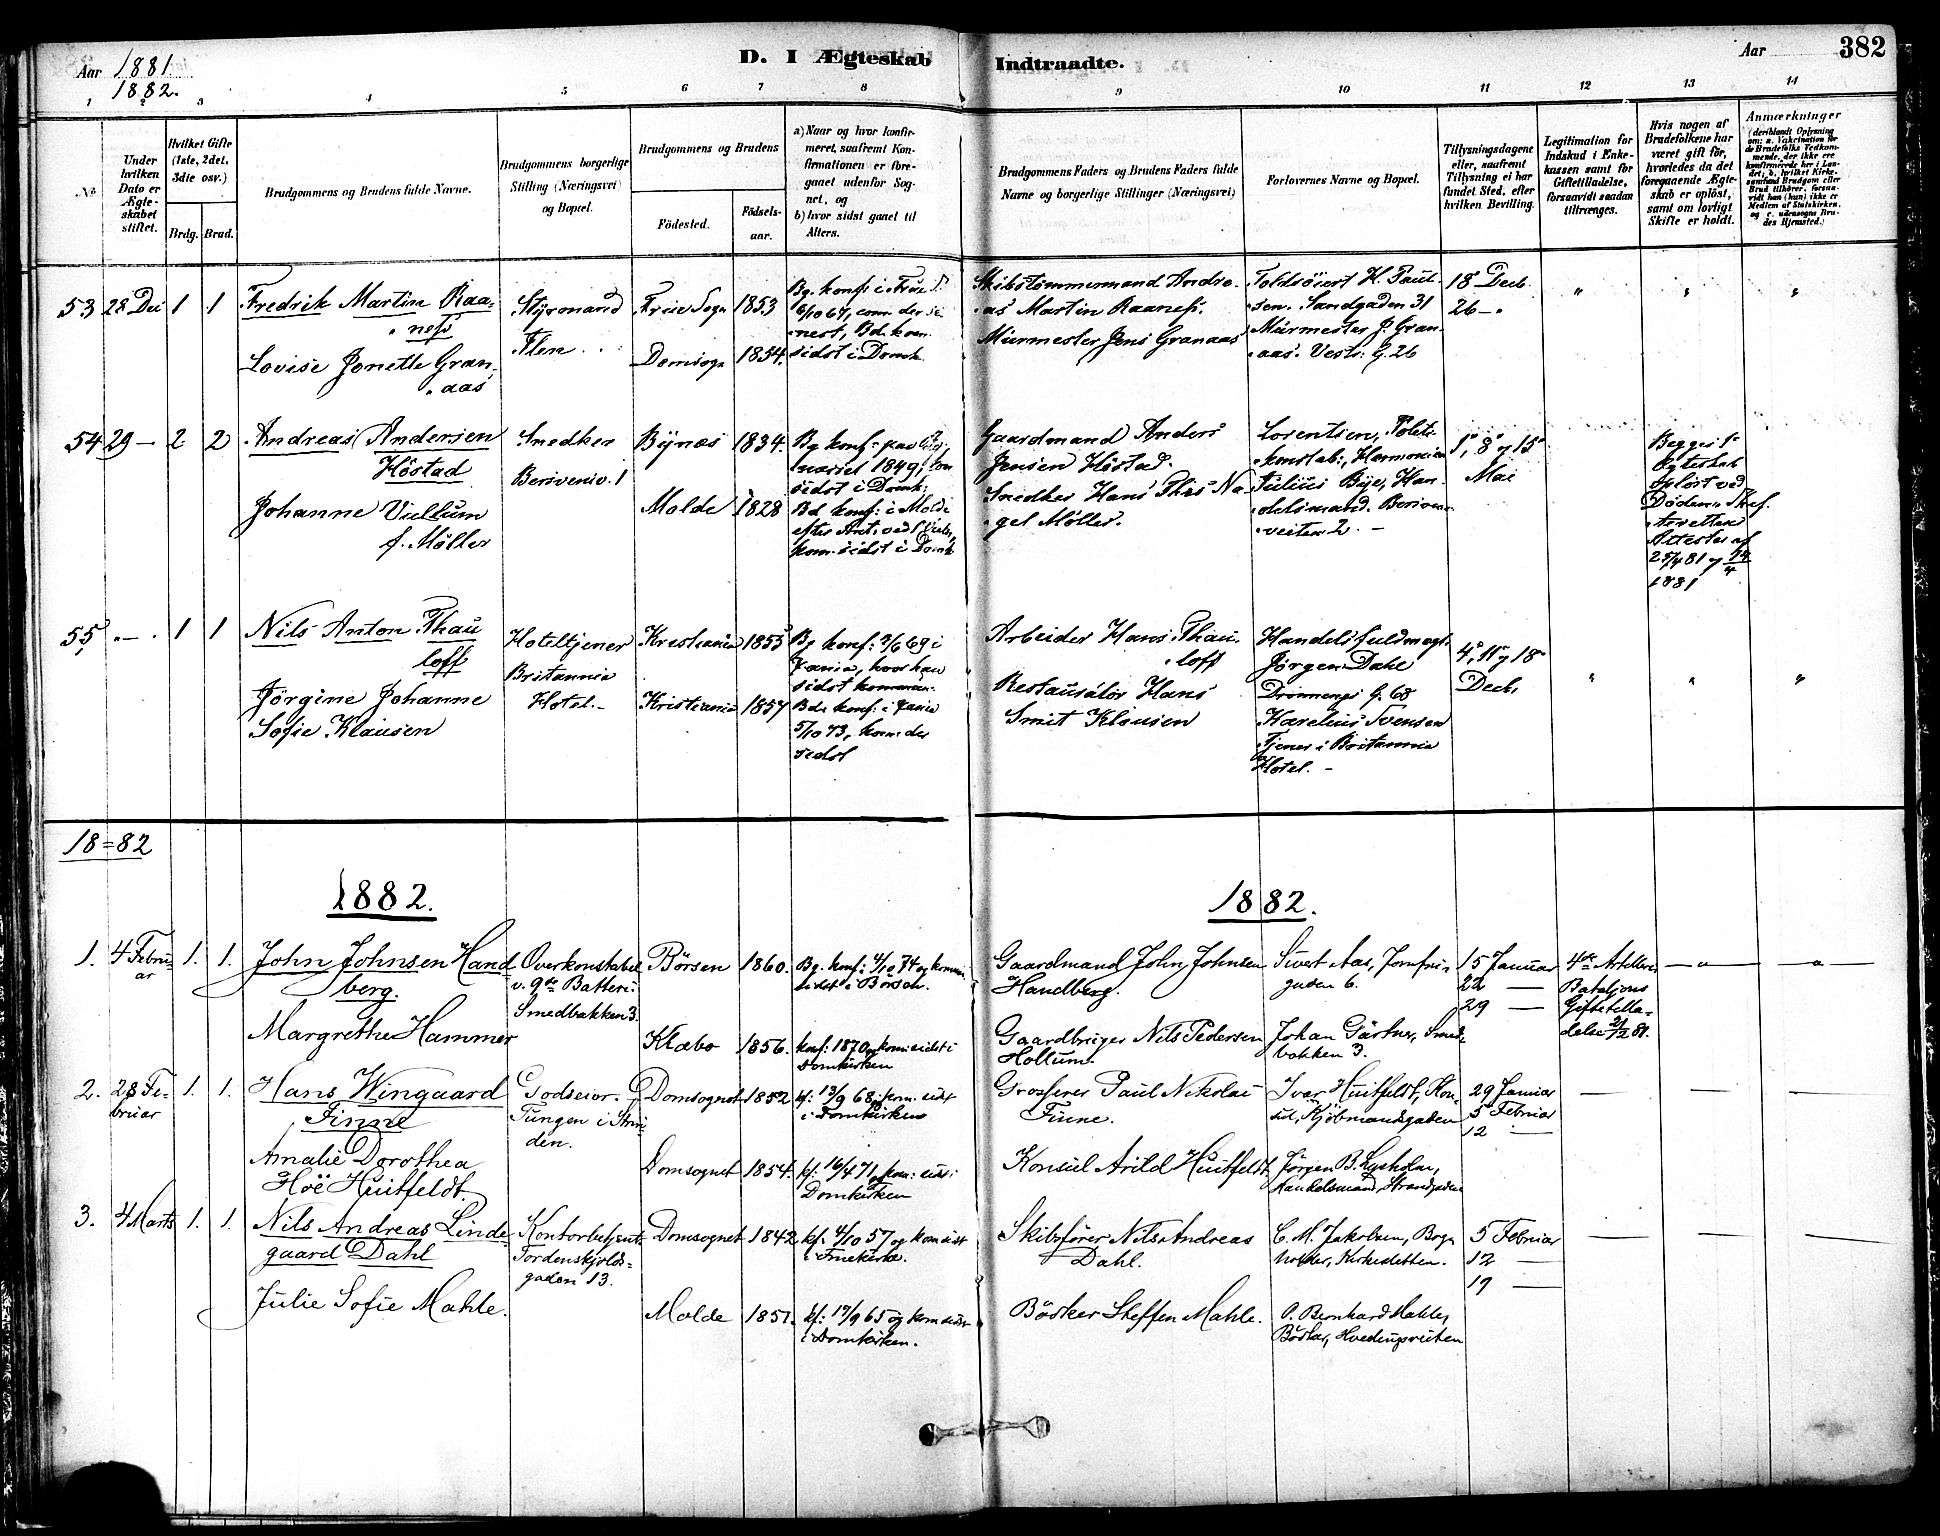 Aar 1881.
1882.
D. I Ægteskab
Indtraadte.
Aar
382
1 2 3 4 5 6 7 8 9 10 11 12 13 14
No
Under hvilken Dato er Ægteskabet stiftet.
Hvilket Gifte (1ste, 2det, 3die osv.)
Brdg. Brud.
Brudgommens og Brudens fulde Navne.
Brudgommens borgerlige Stilling (Næringsvei) og Bopæl.
Brudgommens og Brudens
Födested.
Födselsaar.
a) Naar og hvor konfirmeret, saafremt Konfirmationen er foregaaet udenfor Sognet, og
b) hvor sidst gaaet til Alters.
Brudgommens Faders og Brudens Faders fulde Navne og borgerlige Stillinger (Næringsvei)
Forlovernes Navne og Bopæl.
Tillysningsdagene eller, saafremt Tillysning ei har fundet Sted, efter hvilken Bevilling.
Legitimation for Indskud i Enkekassen samt for Giftetilladelse, forsaavidt saadan tiltrænges.
Hvis nogen af Brudefolkene har været gift för, hvorledes da det foregaaende Ægteskab er oplöst, samt om lovligt Skifte er holdt.
Anmærkninger
53 28 Dec 1 1 Fredrik Martin Raaness
Styrmand
Ilen
Frue Sogn 1853
Skibstömmermand Andreas Martin Raaness.
Toldsöiert H. Paulsen. Sandgaden 31
18 Decb
26 –
Lovise Jonette Granaas
Domsogn 1854.
sidst i Domk.
Murmester Jens Granaas
Murmester J. Granaas. Vestr. G. 26
54 29 – 2 2 Andreas Andersen Höstad
Snedker
Bersveniv. 1
Bynæs 1834.
sidst i Domk:
Gaardmand Anders Jensen Höstad.
Lorentsen, Politikonstab:, Harmonien
1', 8' og 15' Mai
Begges 1'
Ægteskab
oplöst ved
Döden. Skif-
teretten
Attester af
25/4 81 og 14/4
1881
Johanne Vullum
f. Möller
Molde 1828
Bd konf: i Molde
kom. sidst i Domk
Snedker Hans Nagel Möller.
Julius Bye, Handelsmand. Bersvenveiten 2. –
55, " – . 1 1 Nils Anton Thauloff
Hoteltjener
Britannia
Hotel. –
Kristiania 1855
Bg konf: 2/6 69 i
Xania, hvor han
sidst
Arbeider Hans Thauloff
Handelsfuldmægt.
Jörgen Dahl
Dronnengs G. 68
4', 11' og 18'
Decb,
Jörgine Johanne
Sofie Klausen
Kristiania 1857
Bd. konf: i Xania
5/10 73, kom: der
sidst
Restauratör Hans
Smit Klausen
Karelius Svensen
Tjener i Britannia
Hotel. –
18=82
1882.
1882.
1. 4 Februar 1. 1. John Johnsen Handberg.
Overkonstabel
v. 9de Batteri
Smedbakken 3.
Börsen 1860.
Bg. konf: 4/10 74 og kom
sidst i Börsen.
Gaardmand John Johnsen
Handberg.
Sivert Aas, Jomfrugaden 6.
15 Januar
22 —
29 —
4de Artilleri
Bataljons
Giftetilladelse 21/12 81.
Margrethe Hammer
Klæbo 1856.
konf: 1870 og kom sidst i
Domkirken
Gaardbruger Nils Pedersen
Hollum.
Johan Gärtner, Smedbakken 3.
2. 28 Februar 1. 1. Hans Wingaard
Finne
Godseier.
Tungen i Strinden.
Domsognet 1852
kf: 13/9 68, kom. sidst
i Domkirken
Grosserer Paul Nikolai
Finne.
Ivar Huitfeldt, Konsul, Kjöbmandsgaden
29 Januar
5 Februar
12 —
Amalie Dorothea
Höe Huitfeldt.
Domsognet 1854.
kf: 16/4 71, kom: sidst i
Domkirken
Konsul Arild Huitfeldt,
Jörgen B. Lysholm,
Handelsmand, Strandgaden
3. 4 Marts 1. 1. Nils Andreas Lindegaard Dahl
Kontorbetjent
Tordenskjoldsgaden 13.
Domsognet 1842
kf: 4/10 57 og kom sidst
i Fruekirke.
Skibsförer Nils Andreas
Dahl.
C. M. Jakobsen, Bogholder, Kirkesletten.
5 Februar
12 —
19 —
Julie Sofie Mahle.
Molde 1851.
kf: 17/9 65 og kom sidst
i Domkirken.
Bösker Steffen Mahle.
O. Bernhard Mahle,
Bösker, Hvedingsveiten